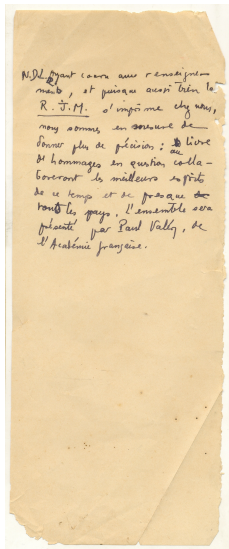 N.D.L.R. Ayant connu avec renseigne-
ments, et puisque aussi bien la
R. J. M. s'imprime chez nous,
nous sommes en mesure de
donner plus de précision : au livre
de hommages en question colla-
boreront les meilleurs esprits
de ce temps et de presque
tous les pays. L'ensemble sera
présenté par Paul Valéry, de
l'Académie française.